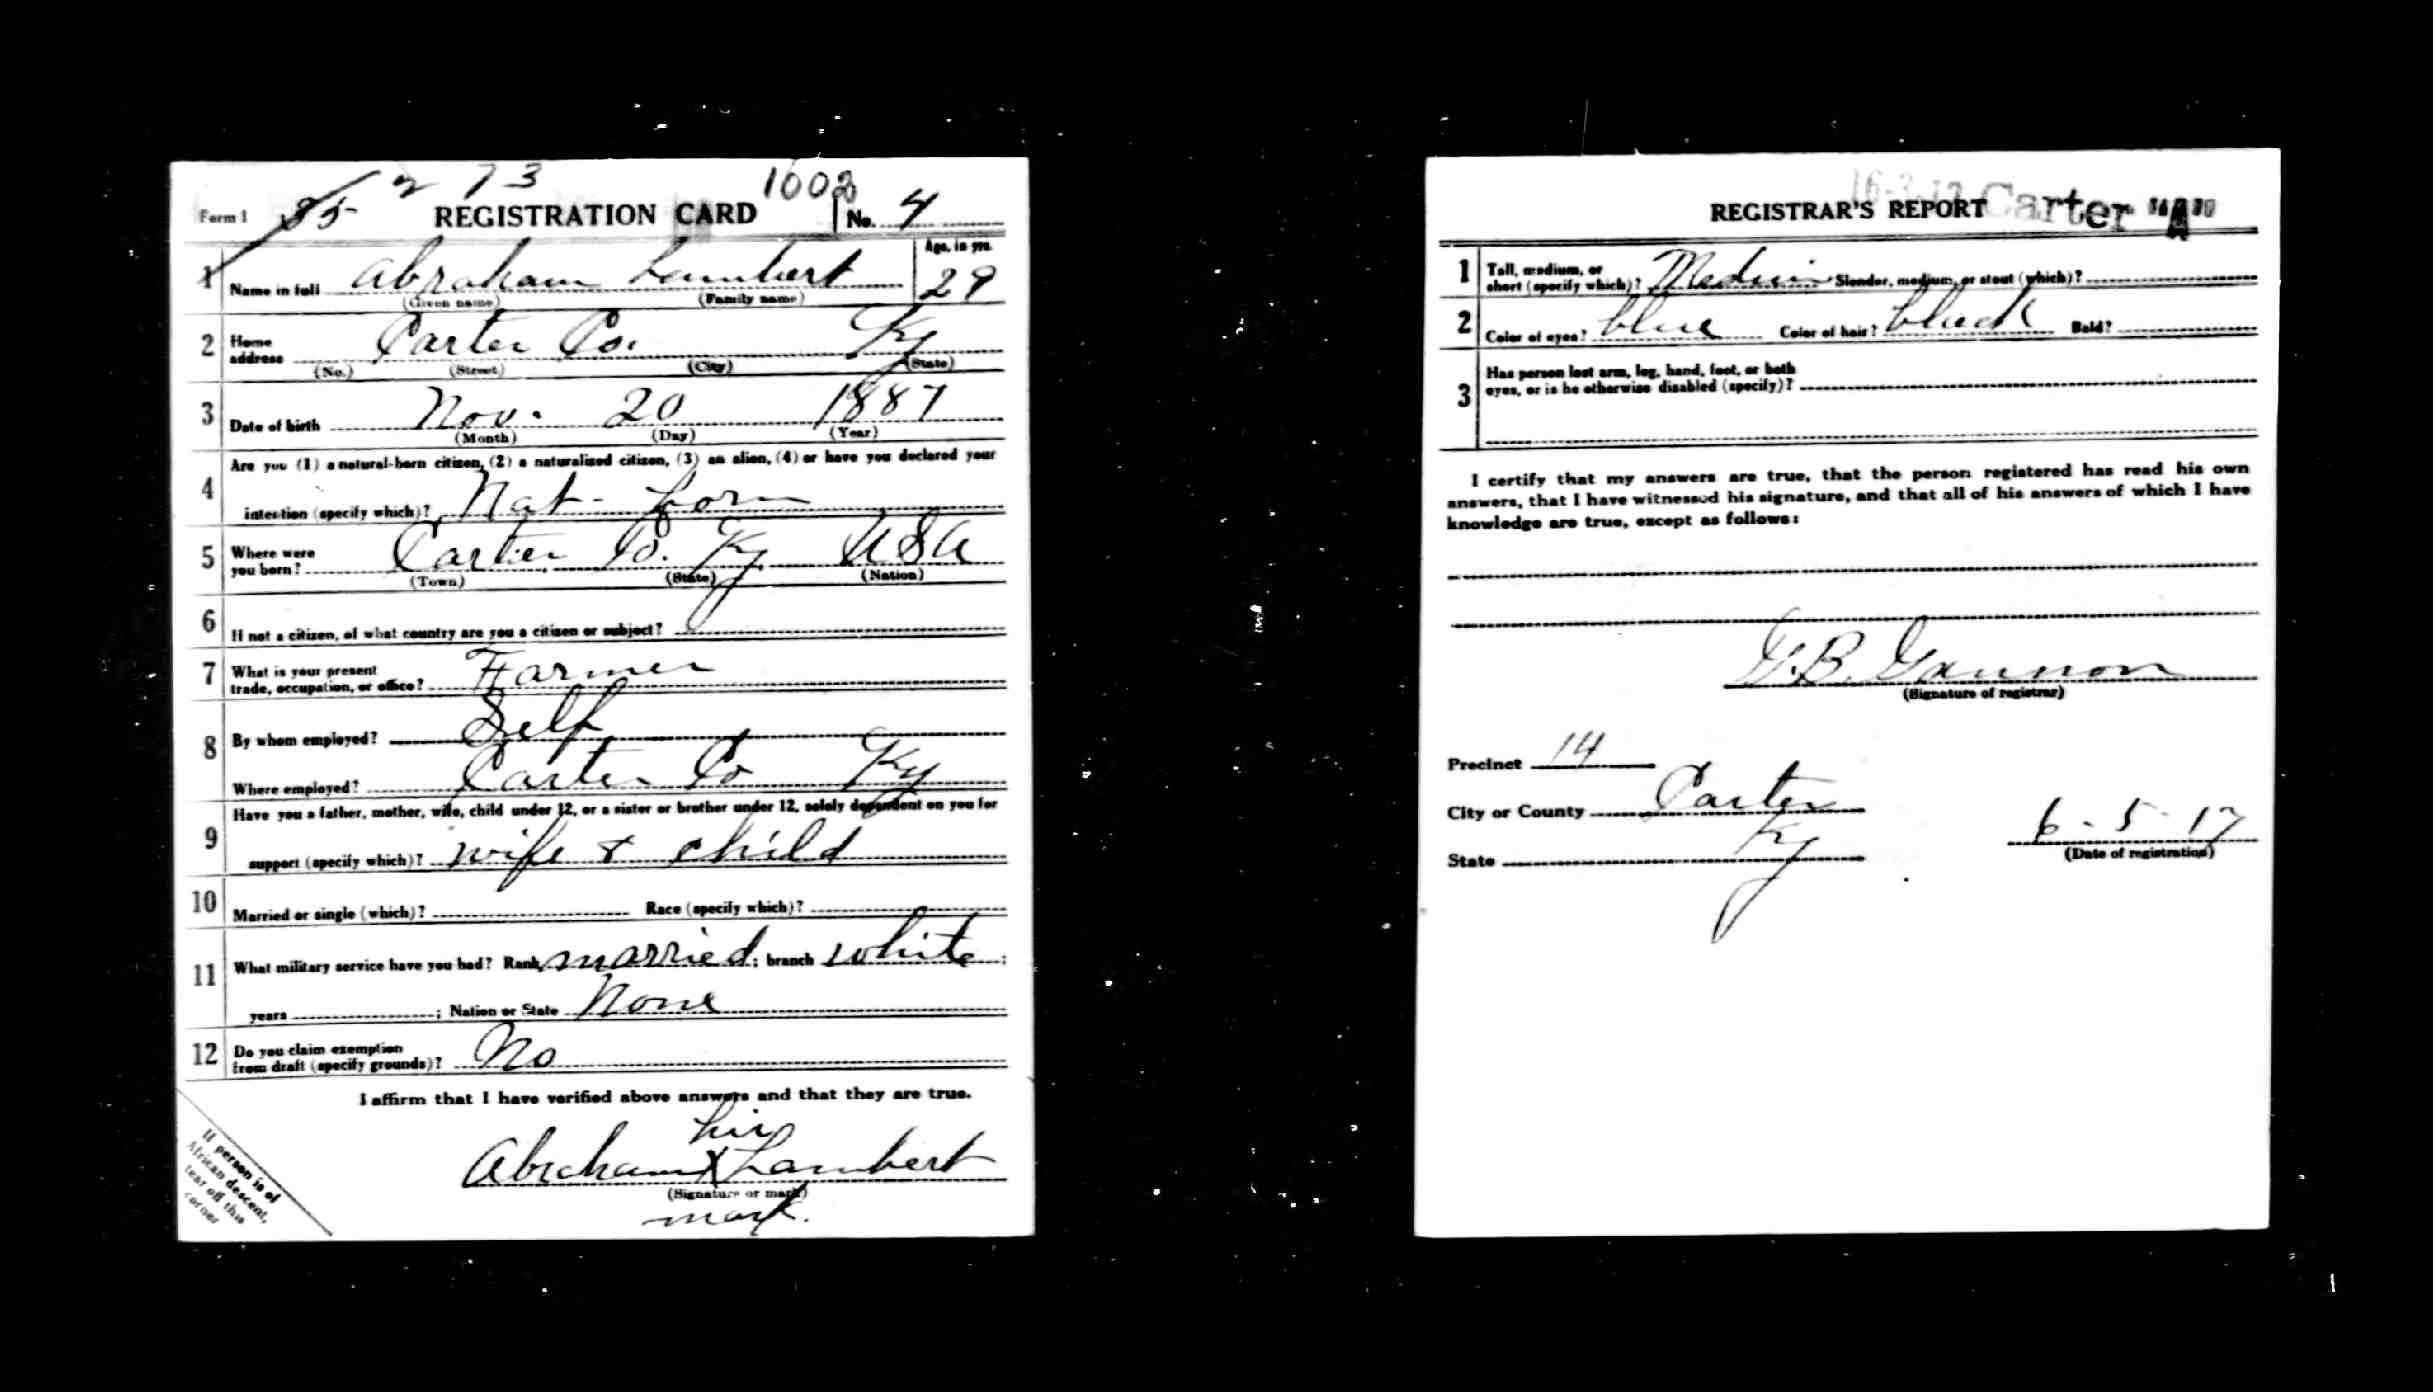 273
1002
Form 1 35 REGISTRATION CARD No. 4
1 Name in full Abraham Lambert Age, in yrs. 29
(Given name) (Family name)
2 Home address Carter Co. Ky
(No.) (Street) (City) (State)
3 Date of birth Nov. 20 1887
(Month) (Day) (Year)
4 Are you (1) a natural-born citizen, (2) a naturalized citizen, (3) an alien, (4) or have you declared your
intention (specify which)? Nat- born
5 Where were you born? Carter Co. Ky USA
(Town) (State) (Nation)
6 If not a citizen, of what country are you a citizen or subject?
7 What is your present trade, occupation, or office? Farmer
8 By whom employed? Self
Where employed? Carter Co Ky
9 Have you a father, mother, wife, child under 12, or a sister or brother under 12, solely dependent on you for
support (specify which)? wife & child
10 Married or single (which)? Race (specify which)?
11 What military service have you had? Rank married; branch white;
years ; Nation or State None
12 Do you claim exemption from draft (specify grounds)? No
I affirm that I have verified above answers and that they are true.
his
Abraham X Lambert
(Signature or mark)
mark.
If person is of
African descent,
tear off this
corner
REGISTRAR'S REPORT Carter "A"
1 Tall, medium, or short (specify which)? Medium Slender, medium, or stout (which)?
2 Color of eyes? blue Color of hair? black Bald?
3 Has person lost arm, leg, hand, foot, or both
eyes, or is he otherwise disabled (specify)?
I certify that my answers are true, that the person registered has read his own
answers, that I have witnessed his signature, and that all of his answers of which I have
knowledge are true, except as follows:
G.B. Gannon
(Signature of registrar)
Precinct 14
City or County Carter
State Ky
6-5-17
(Date of registration)